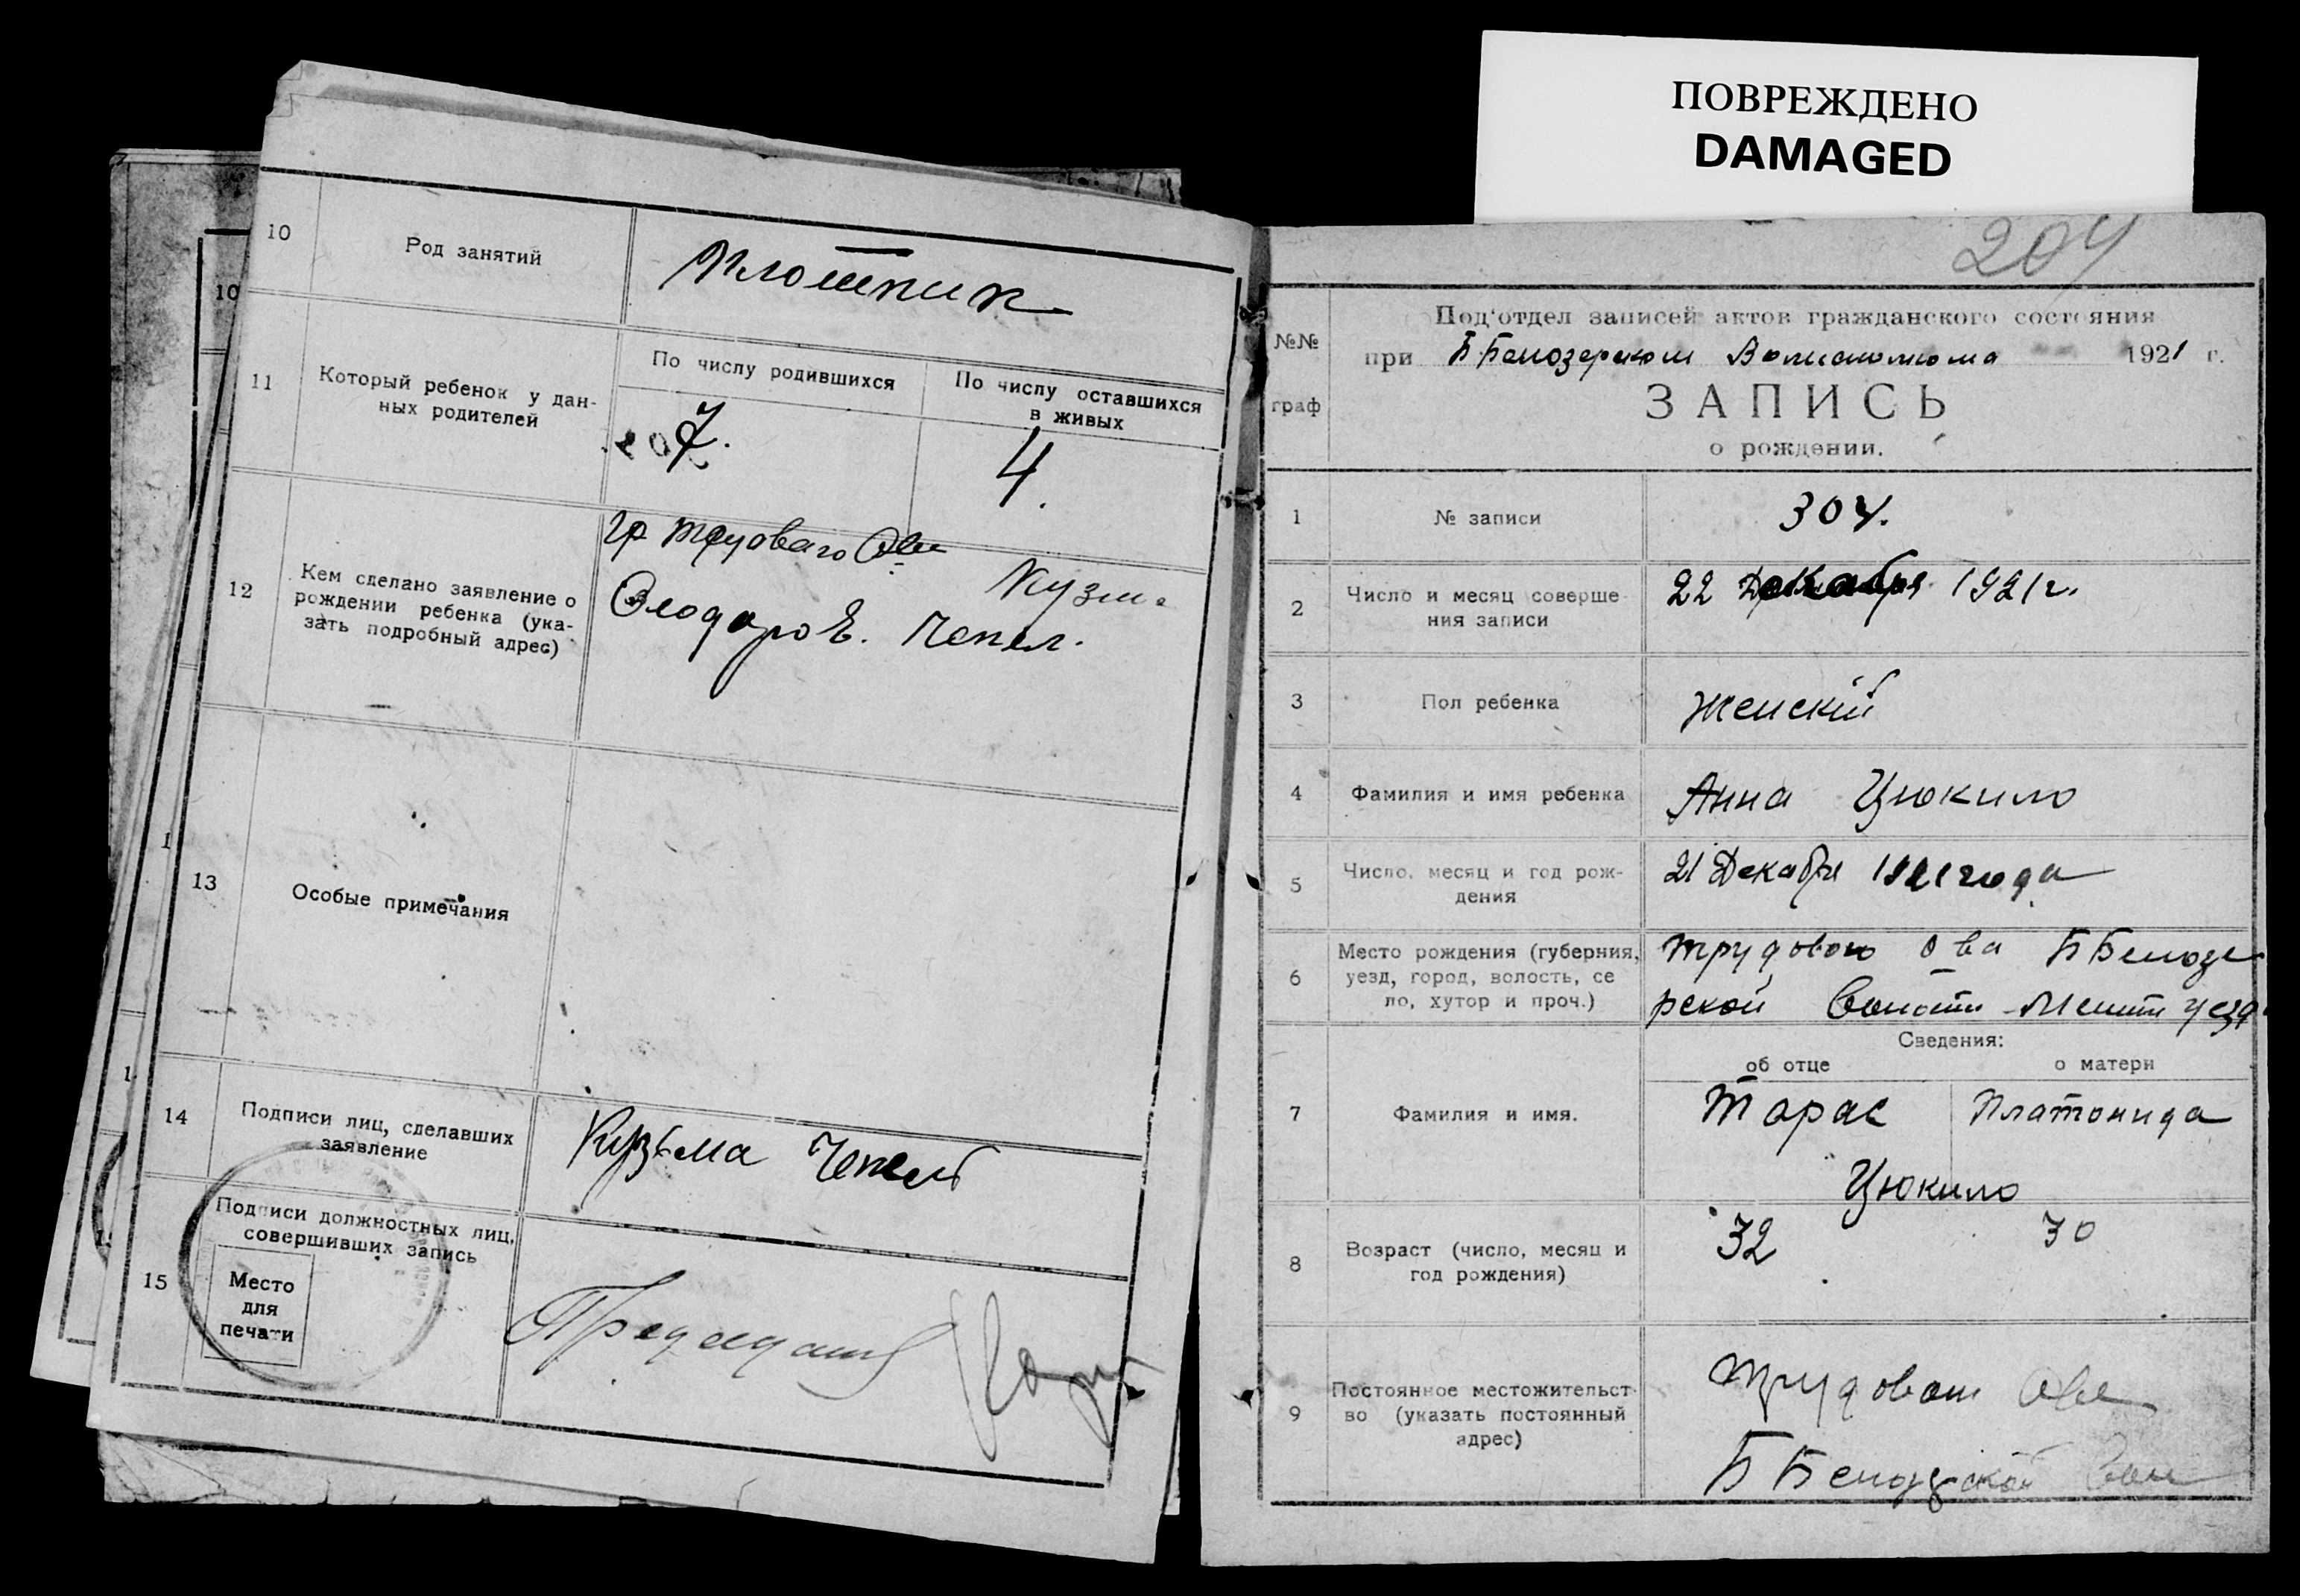 ПОВРЕЖДЕНО
DAMAGED
10
Род занятий
Плотник
11
Который ребенок у дан-
ных родителей
По числу родившихся
По числу оставшихся
в живых
7.
4.
12
Кем сделано заявление о
рождении ребенка (ука-
зать подробный адрес)
гр
Кузм.
Чепел.
13
Особые примечания
14
Подписи лиц, сделавших
заявление
Кузьма Чепель
15
Подписи должностных лиц,
совершивших запись
Место
для
печати
10
204
№№
граф
Под'отдел записей актов гражданского состояния
при Б Белозерском 1921 г.
ЗАПИСЬ
о рождении.
1
№ записи
304.
2
Число и месяц соверше-
ния записи
22 Декабря 1921 г.
3
Пол ребенка
Женскій
4
Фамилия и имя ребенка
Анна Цюкило
5
Число, месяц и год рож-
дения
21 Декабря 1921 года
6
Место рождения (губерния,
уезд, город, волость, се
ло, хутор и проч.)
Трудового О ва Б Белозе
рской Волости Мелит уезд.
Сведения:
об отце
о матери
7
Фамилия и имя.
Тарас
Платонида
Цюкило
8
Возраст (число, месяц и
год рождения)
32
30
9
Постоянное местожительст-
во (указать постоянный
адрес)
Б